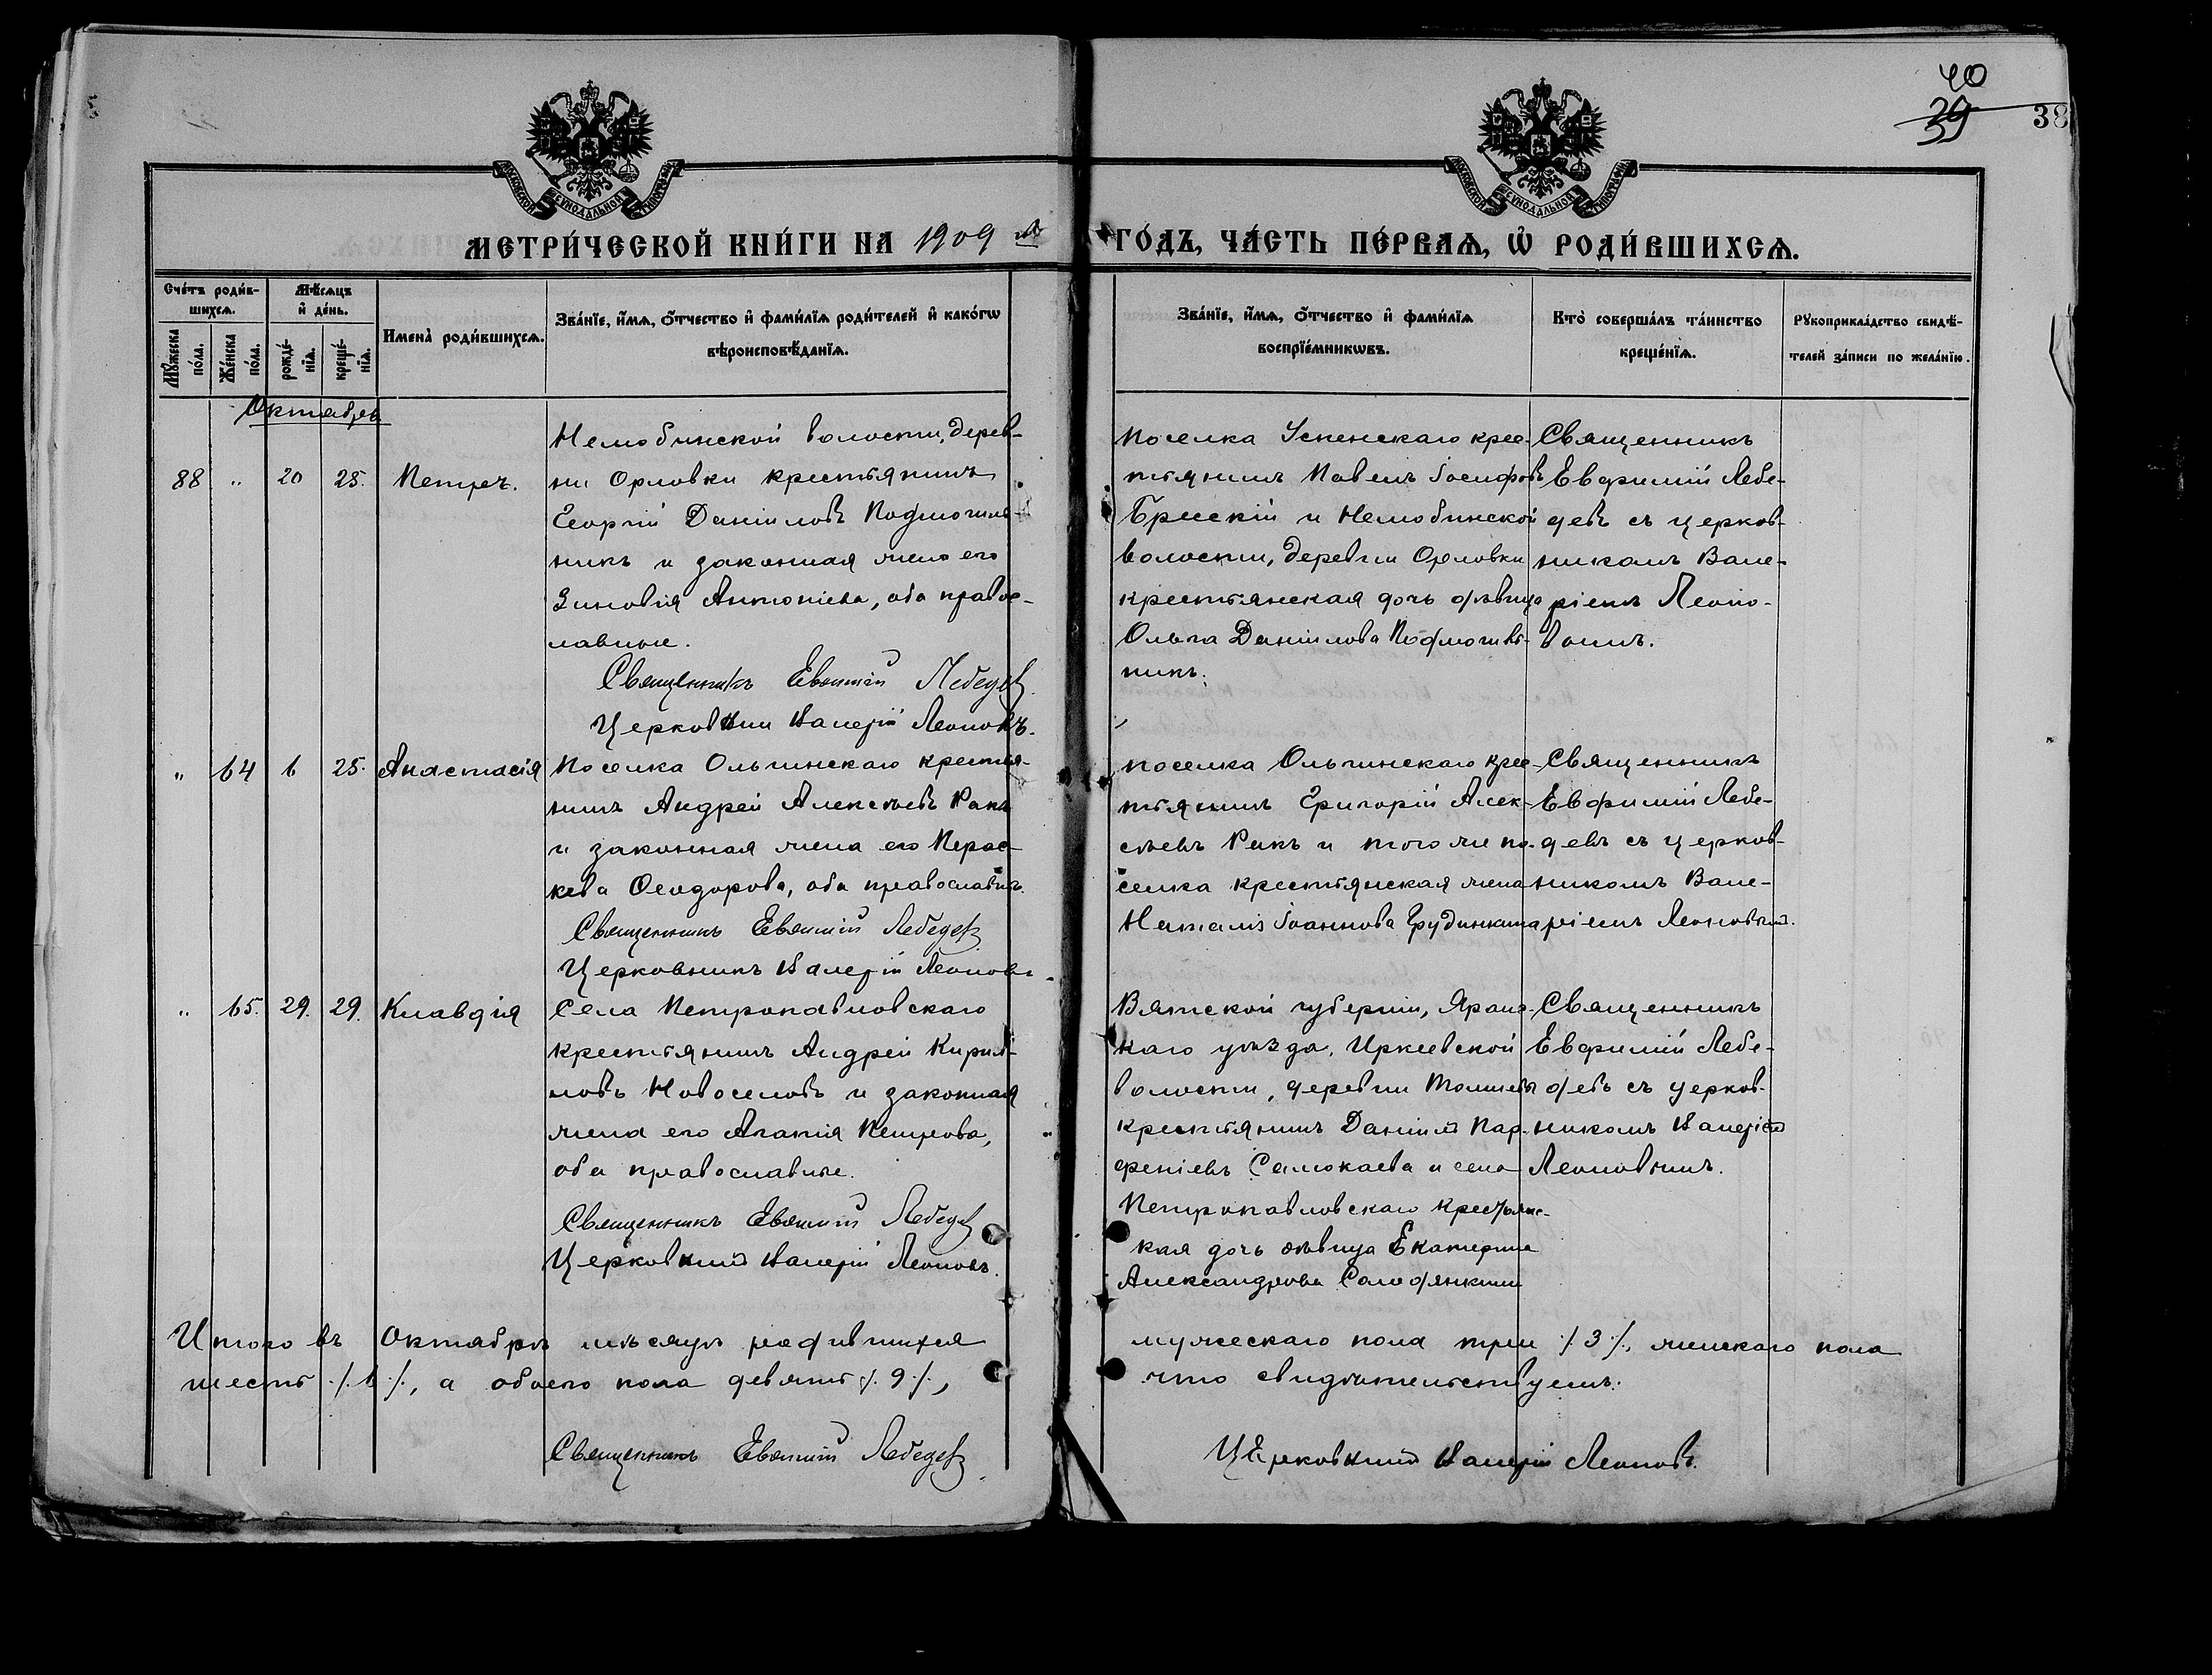 40
39
38
МОСКОВСКОЙ СѴНОДАЛЬНОЙ ТИПОГРАФІИ
МОСКОВСКОЙ СѴНОДАЛЬНОЙ ТИПОГРАФІИ
МЕТРИ́ЧЕСКОЙ КНИ́ГИ НА 1909 й
ГО́ДЪ, ЧА́СТЬ ПЕ́РВАѦ, Ѡ҆ РОДИ́ВШИХСѦ.
Сче́тъ роди́в-
шихсѧ.
Мꙋ́жеска по́ла.
Же́нска по́ла.
Мѣ́сѧцъ
и҆ де́нь.
рожде́-
нїѧ.
креще́-
нїѧ.
Имена̀ роди́вшихсѧ.
Зва́нїе, и҆́мѧ, ѻ҆́тчество и҆ фами́лїѧ роди́телей и҆ како́гѡ
вѣроисповѣ́данїѧ.
Зва́нїе, и҆́мѧ, ѻ҆́тчество и҆ фами́лїѧ
воспрїе́мникѡвъ.
Кто̀ соверша́лъ та́инство
креще́нїѧ.
Рꙋкоприкла́дство свидѣ́-
телей за́писи по жела́нїю.
Октябрь
88 " 20 25. Петръ.
Немобинской волости, дерев-
ни Орловки крестьянинъ
Георгій Даніиловъ Подмогиль-
никъ и законная жена его
Зиновія Антоніева, оба правос-
лавные.
Священникъ Евѳимій Лебедев
Церковник Валерій Леоновъ.
поселка Успенскаго крес-
тьянинъ Павелъ Іосифовъ
Брисскій и Немобинской
волости, деревни Орловки
крестьянская дочь дѣвица
Ольга Даніилова Подмогиль-
никъ.
Священникъ
Евфимій Лебе-
девъ съ церков-
никомъ Вале-
ріемъ Леоно-
вымъ.
" 64 6 25. Анастасія
Поселка Ольгинскаго крестья-
нинъ Андрей Алексѣевъ Ракъ
и законная жена его Парас-
кева Ѳеодорова, оба православные.
Священникъ Евѳимій Лебедев
Церковникъ Валерій Леоновъ
поселка Ольгинскаго крес-
тьянинъ Григорій Алек-
сѣевъ Ракъ и того же по-
селка крестьянская жена
Наталія Іоаннова Грудинкина
Священникъ
Евфимій Лебе-
девъ съ церков-
никомъ Вале-
ріемъ Леоновымъ.
" 65. 29. 29. Клавдія
Села Петропавловскаго
крестьянинъ Андрей Кирил-
ловъ Новоселовъ и законная
жена его Агапія Петрова,
оба православные.
Священникъ Евѳимій Лебедев
Церковник Валерій Леоновъ.
Вятской губерніи, Яранс-
каго уѣзда, Иркеевской
волости, деревни
крестьянинъ Даніилъ Пар-
феніевъ Самокаева и села
Петропавловскаго крестьянс-
кая дочь дѣвица Екатерина
Александрова Солодянкина
Священникъ
Евфимій Лебе-
девъ съ церков-
никомъ Валеріемъ
Леоновымъ.
Итого въ Октябрѣ мѣсяцѣ родившихся
мужескаго пола три ./. 3 ./., женскаго пола
шесть ./. 6 ./., а обоего пола девять ./. 9 ./.,
что свидѣтельствуемъ:
Священникъ Евѳимій Лебедев
Церковник Валерій Леоновъ.